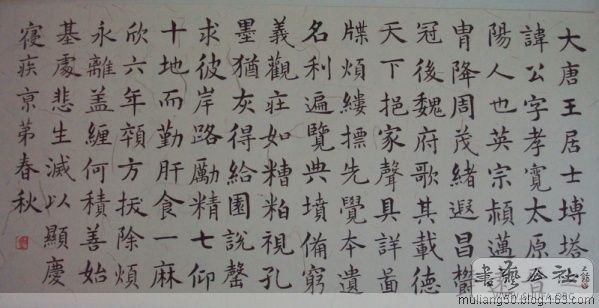 大唐王居士塼塔
諱公字孝寬太原晉
陽人也英宗頴邁
胄降周茂緒遐昌鬱
冠後魏府歌其載德
天下挹家聲具詳啚
牒煩縷摽先覺本遺
名利遍覽典墳備窮
義觀莊如糟粕視孔
墨猶灰得給園說罄
求彼岸路勵精七仰
十地而勤肝食一麻
欣六年方拔除煩
永離盖纏何積善始
基處悲生滅以顯慶
寑疾京第春秋
書藝公社
muliang50.blog.163.com